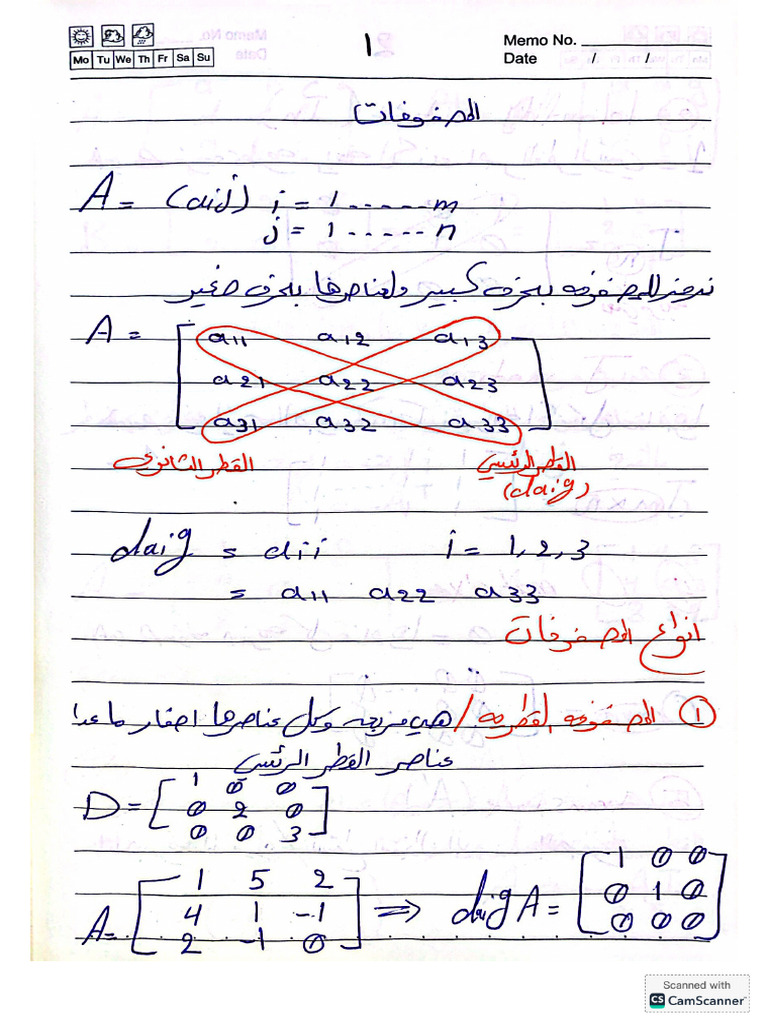 Memo No.
Mo Tu We Th Fr Sa Su
Date / /
1
المصفوفات
A = (aij) i = 1 ----- m
j = 1 ----- n
نرمز للمصفوفه بحرف كبير ولعناصرها بحرف صغير
A = [ a11 a12 a13
a21 a22 a23
a31 a32 a33 ]
القطر الرئيسي القطر الثانوي
(daig)
daig = aii i = 1, 2, 3
= a11 a22 a33
انواع المصفوفات
① المصفوفه القطريه / هي مربعه وكل عناصرها اصفار ماعدا
عناصر القطر الرئيسي
D = [ 1 0 0
0 2 0
0 0 3 ]
A = [ 1 5 2
4 1 -1
2 -1 0 ] => daig A = [ 1 0 0
0 1 0
0 0 0 ]
Scanned with
CS CamScanner